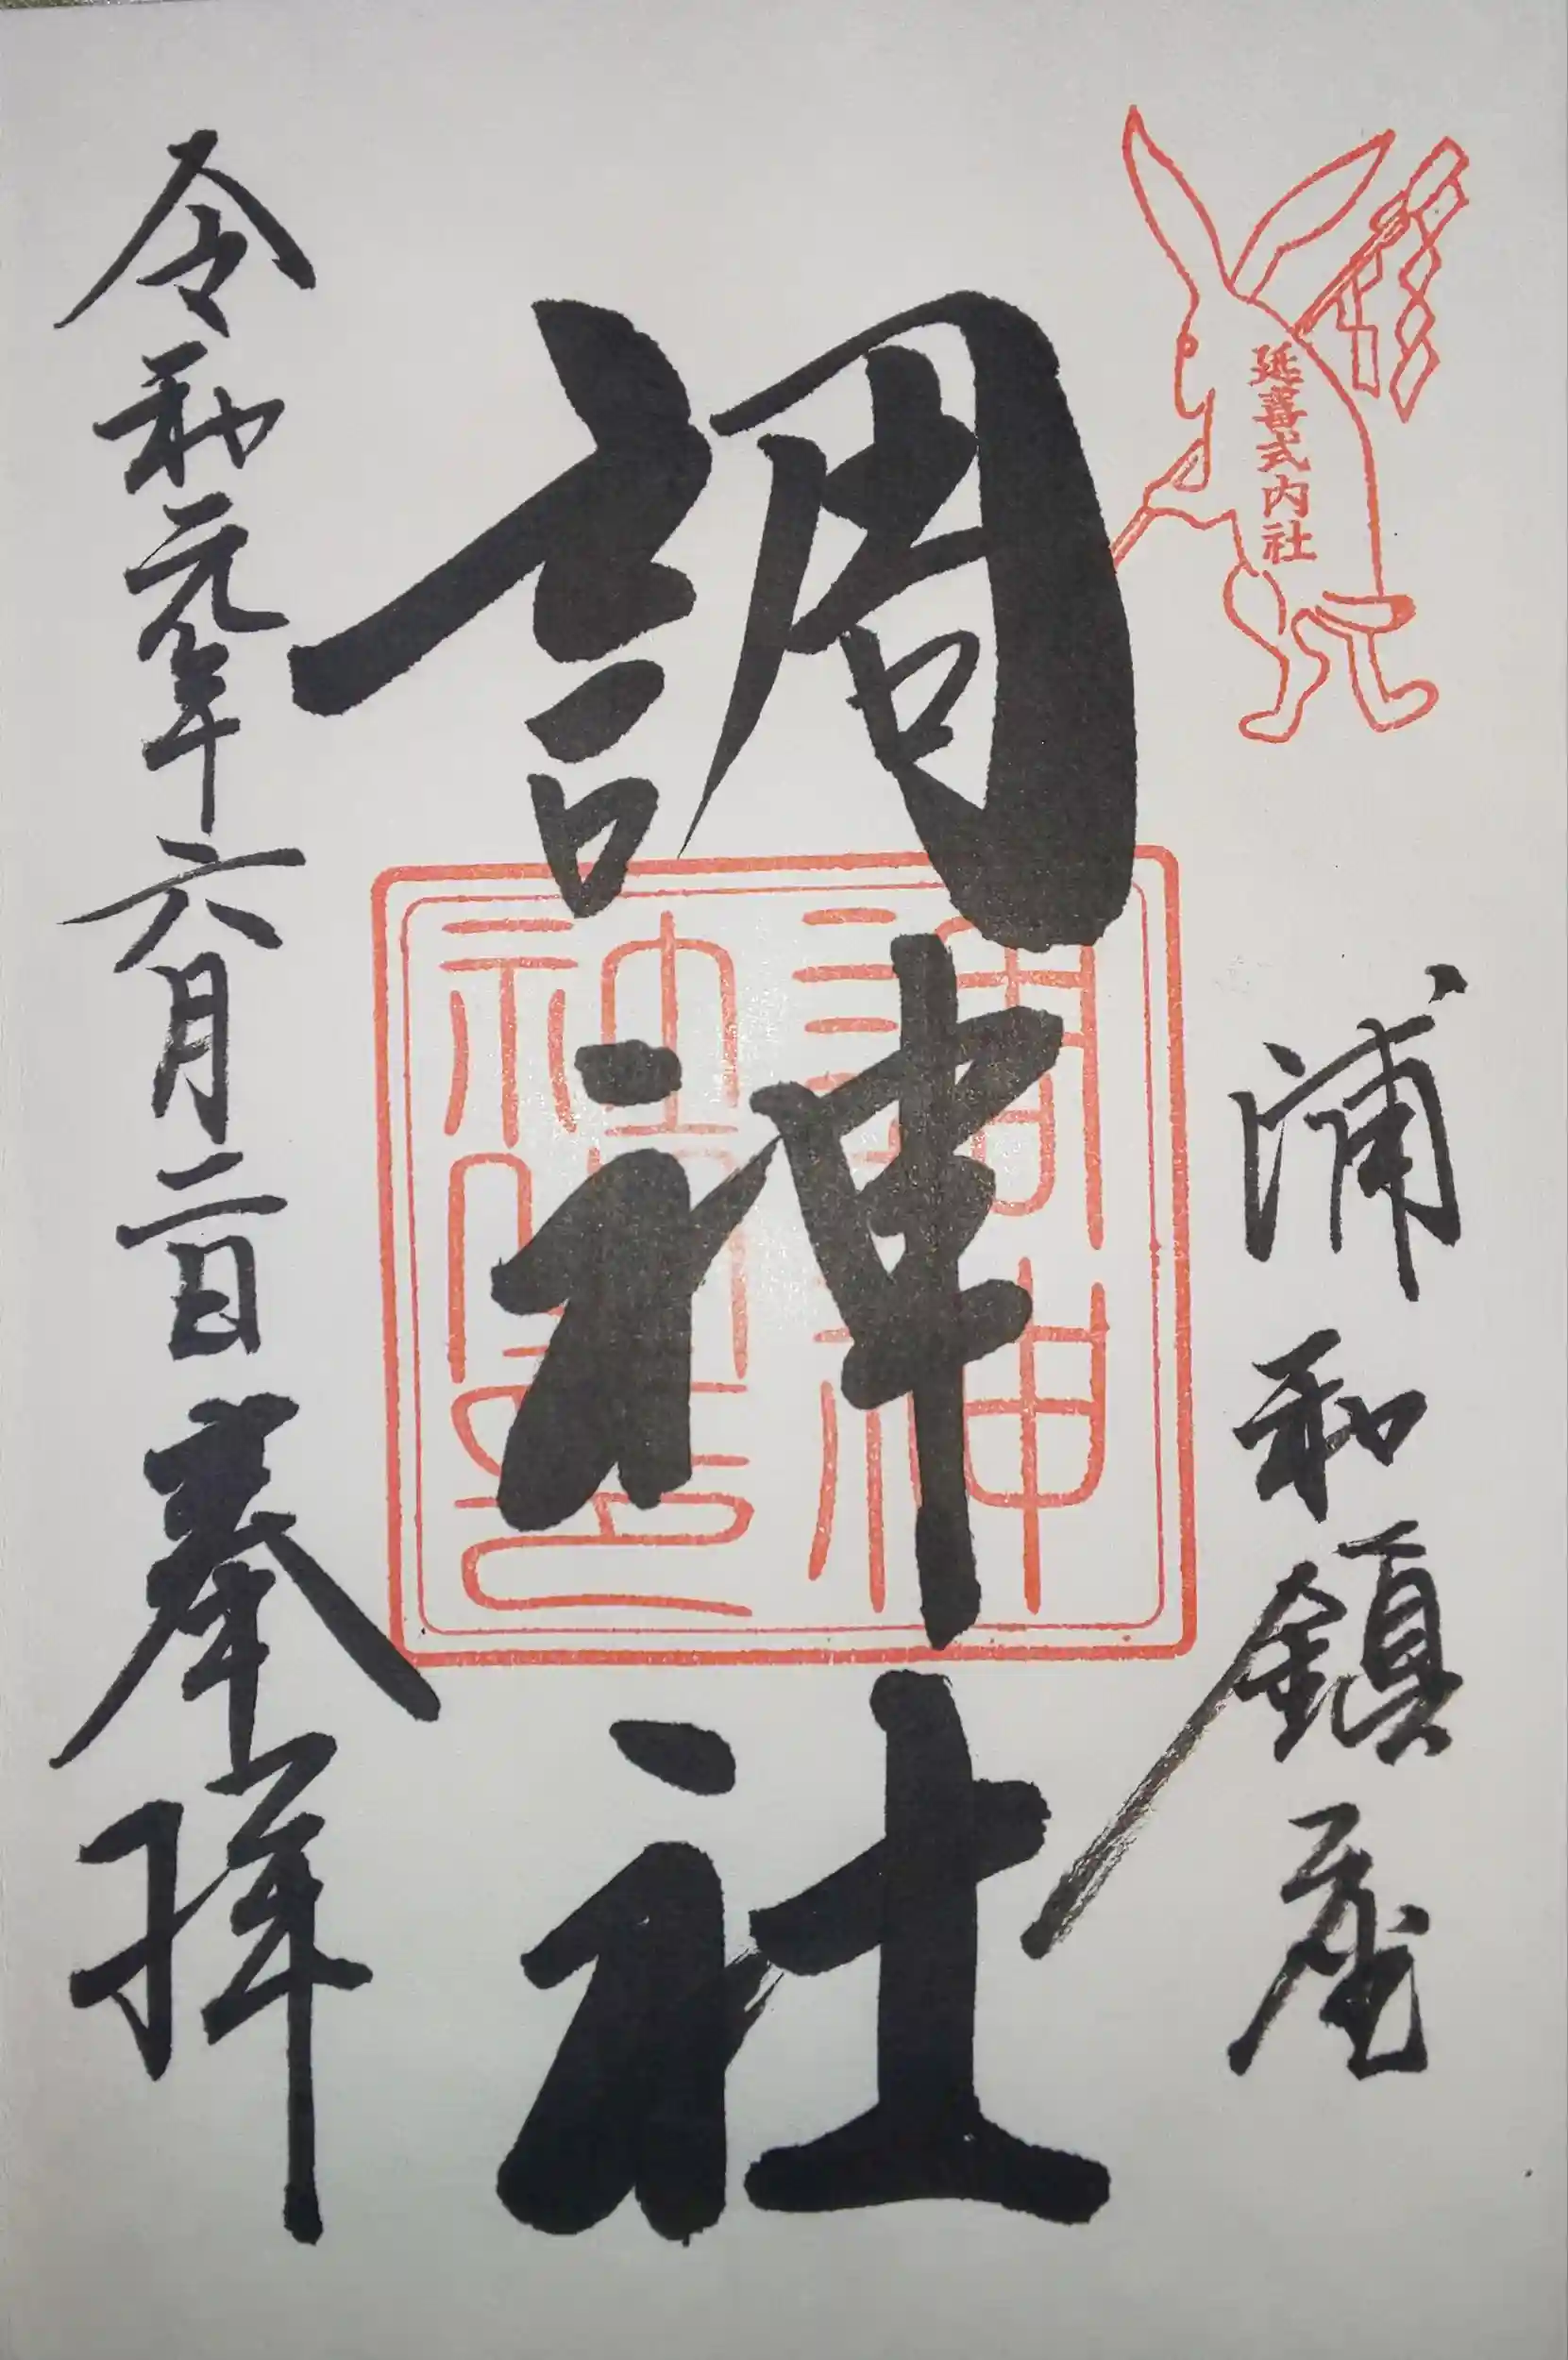 延喜式内社
浦和鎮座
調神社
調神
社之印
令和元年六月二日奉拝